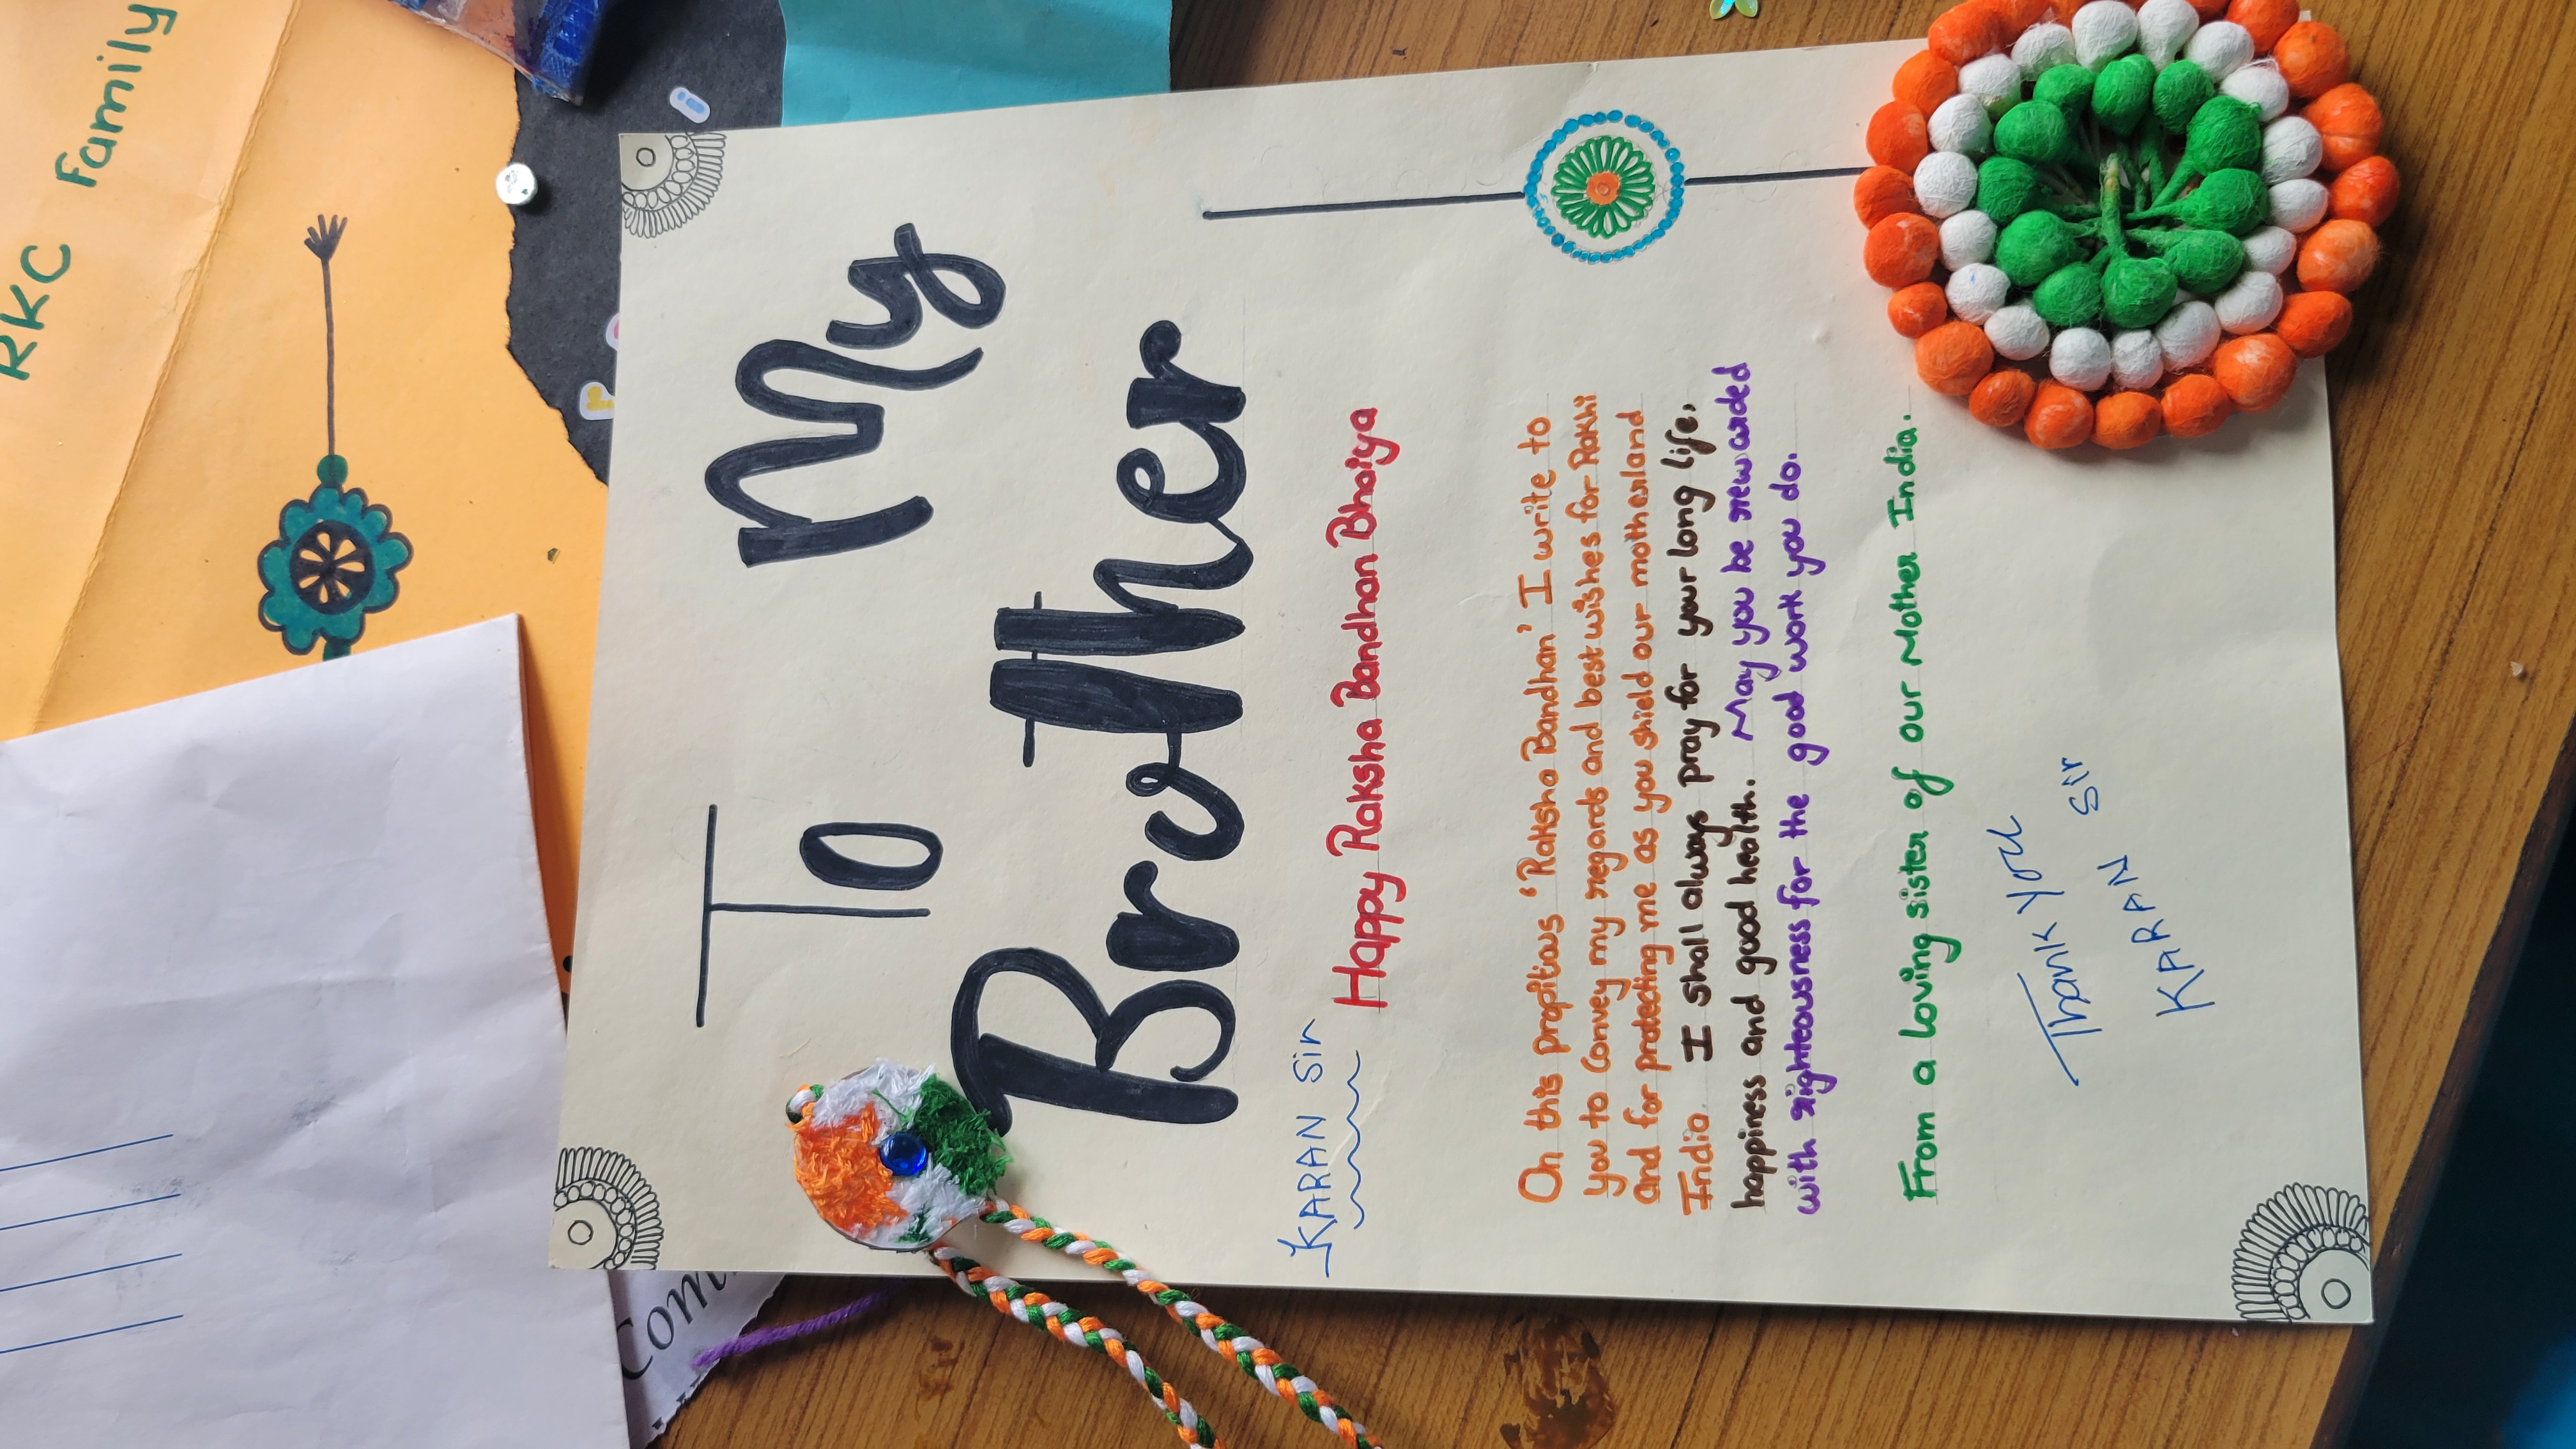 To My
Brother
KARAN Sir
Happy Raksha Bandhan Bhaiya
On this propitious 'Raksha Bandhan' I write to
you to Convey my regards and best wishes for Rakhi
and for protecting me as you shield our motherland
India. I shall always pray for your long life,
happiness and good health. May you be rewarded
with righteousness for the good work you do.
From a loving sister of our Mother India.
Thank You
KARAN Sir
RKC Family